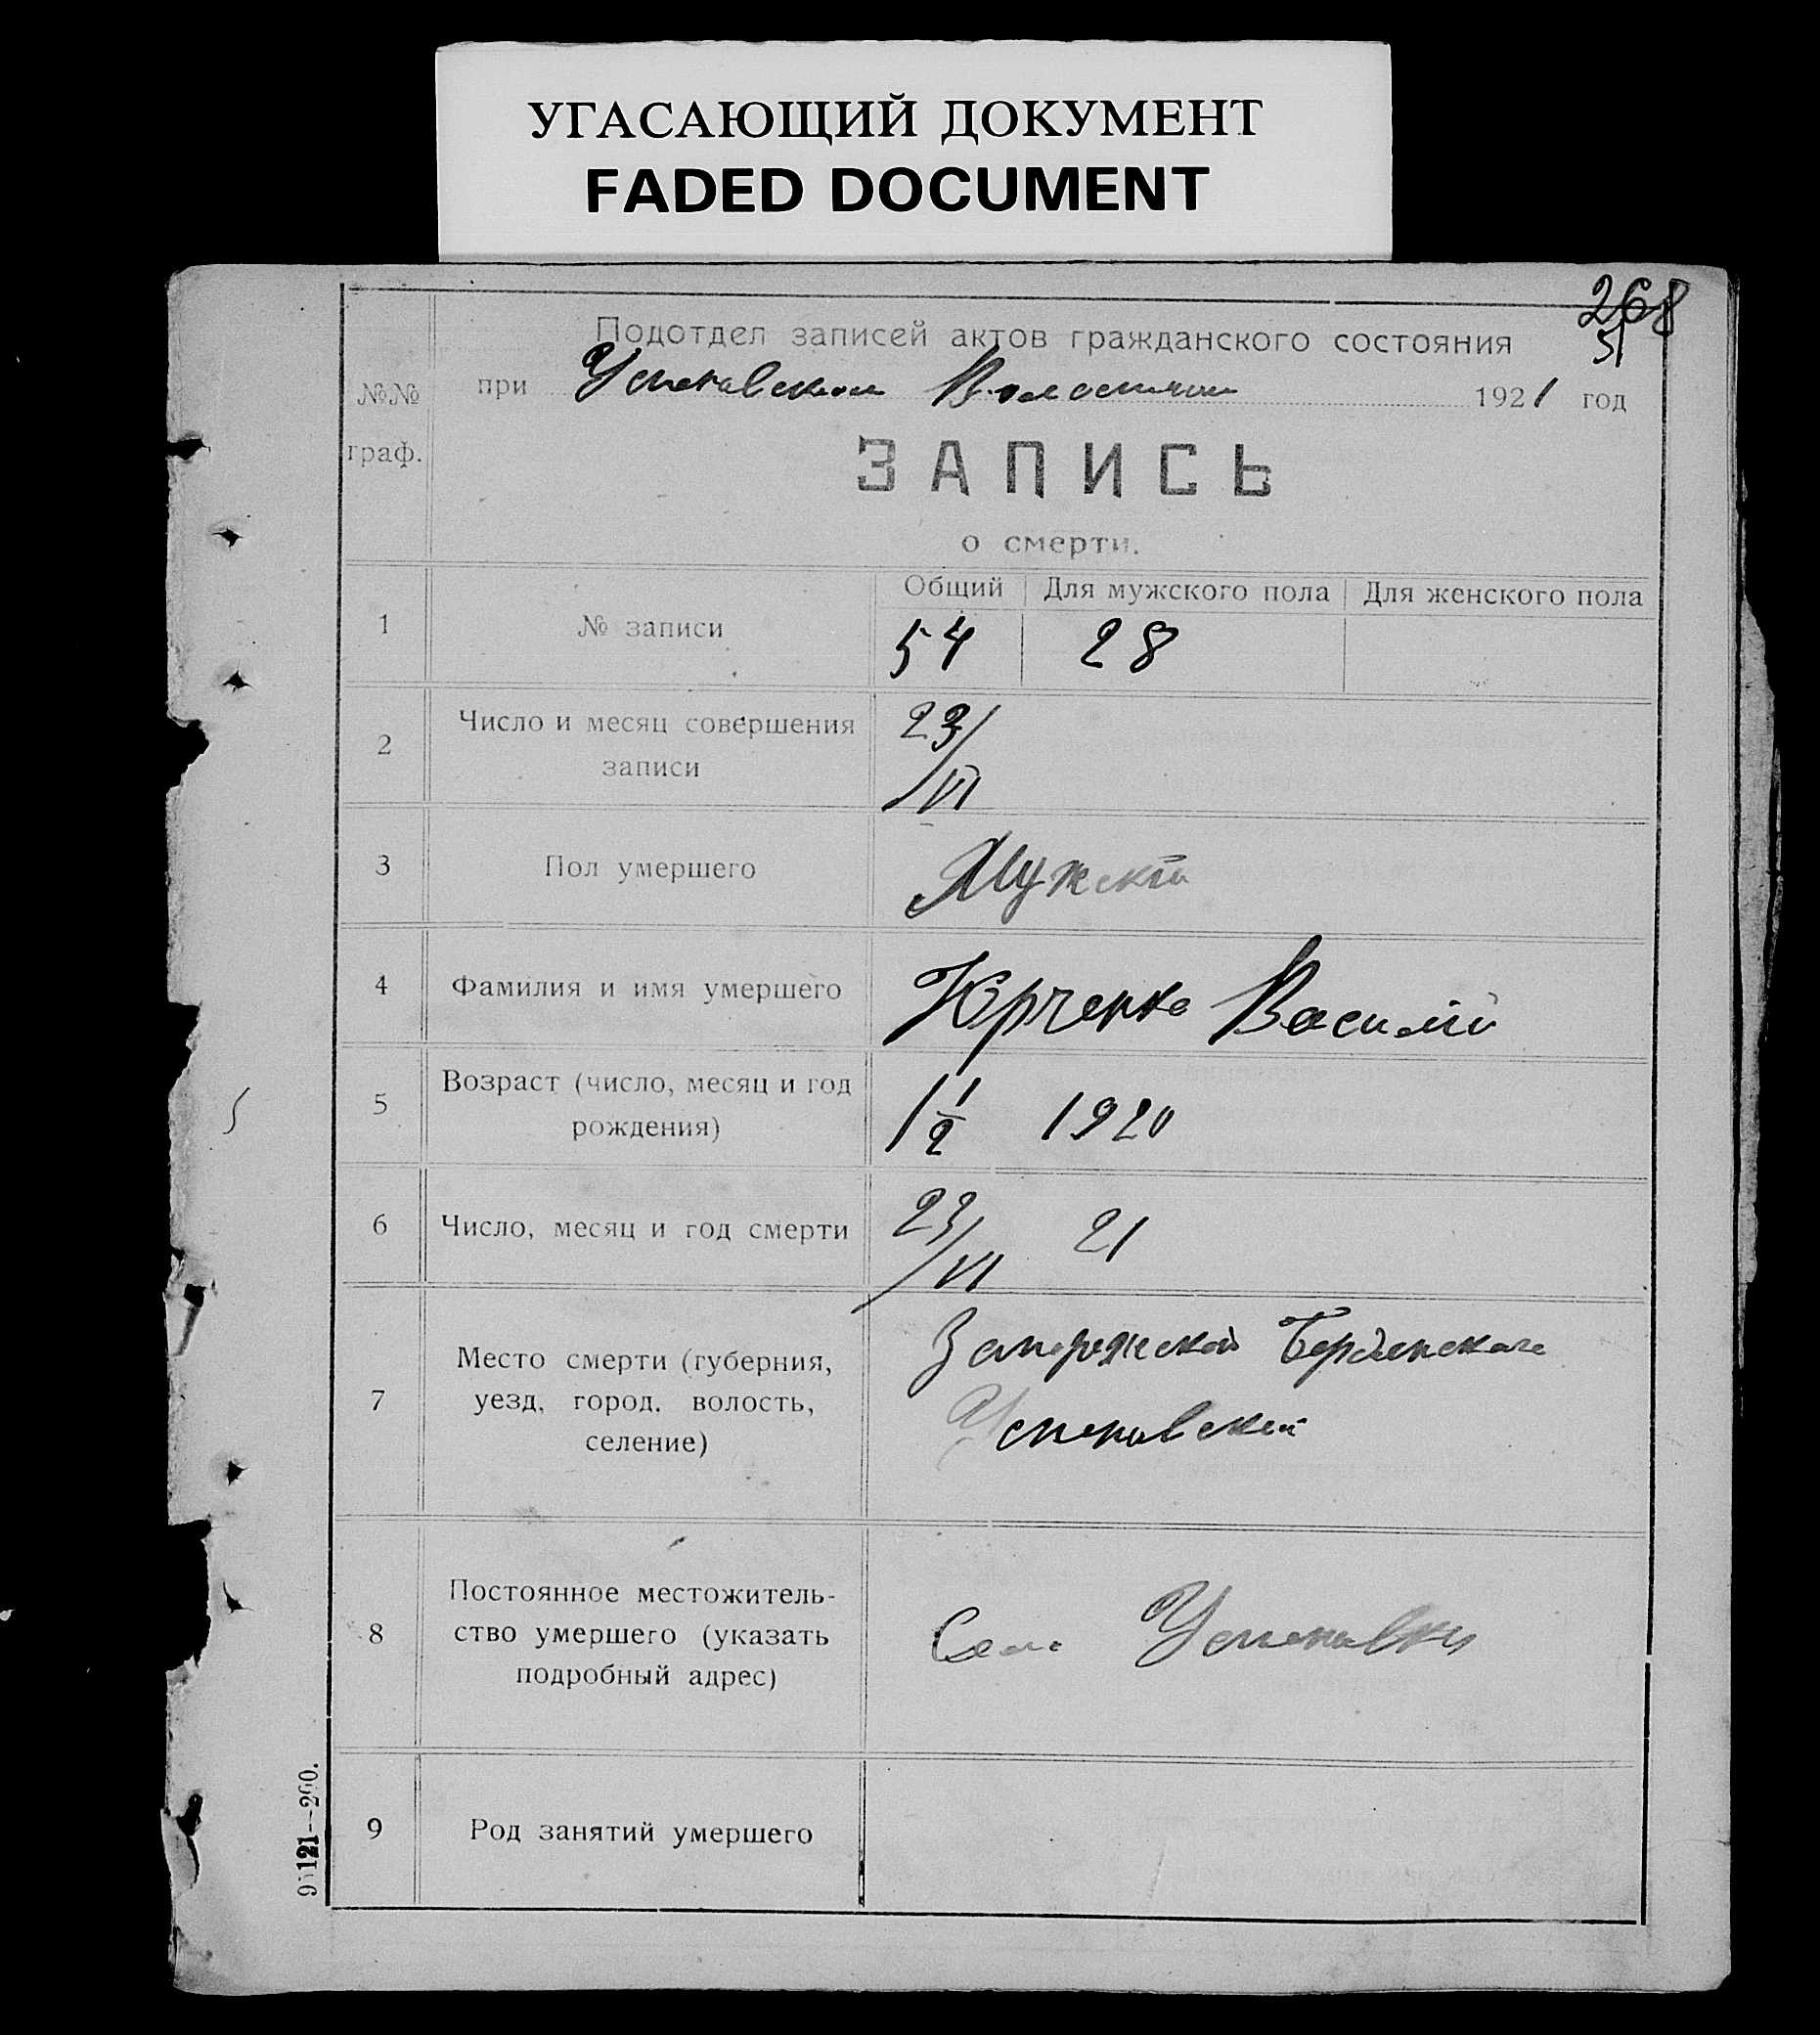 УГАСАЮЩИЙ ДОКУМЕНТ
FADED DOCUMENT
268
51
Подотдел записей актов гражданского состояния
№№ граф.
при Успеновском Волостном 1921 год
ЗАПИСЬ
о смерти.
Общий Для мужского пола Для женского пола
1 № записи 54 28
2 Число и месяц совершения
записи 23/VI
3 Пол умершего Мужской
4 Фамилия и имя умершего Юрченко Василий
5 Возраст (число, месяц и год
рождения) 1 1/2 1920
6 Число, месяц и год смерти 23/VI 21
7 Место смерти (губерния,
уезд, город, волость,
селение)
Запорожской Бердянского
Успеновской
8 Постоянное местожитель-
ство умершего (указать
подробный адрес)
Село Успеновка
9 Род занятий умершего